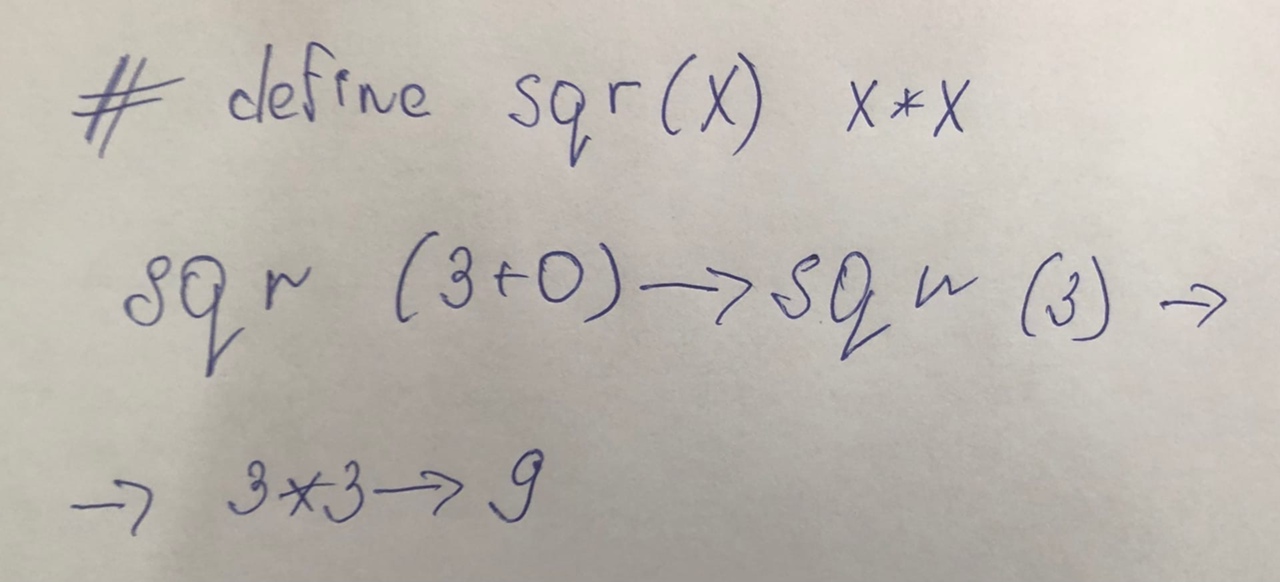 # define sqr(X) X*X
sqr (3+0)→sqr (3) →
→ 3*3→9